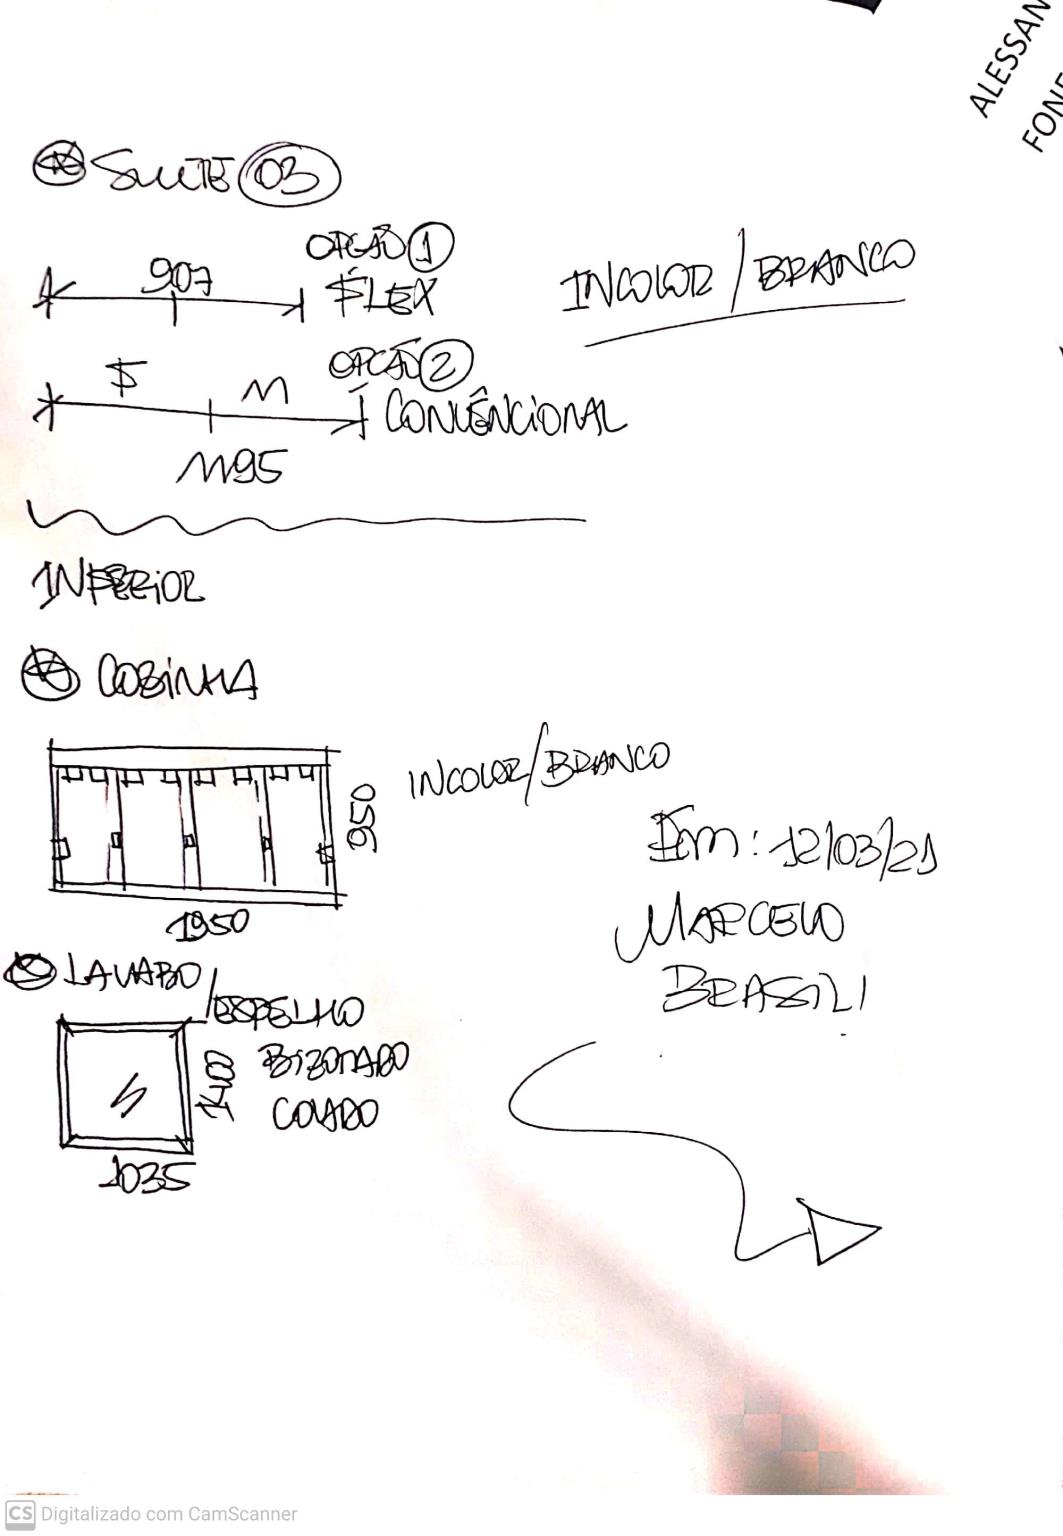 ALESSAN
FONE
SUITE 03
907
OPÇÃO 1
FLEX
INCOLOR / BRANCO
F M
OPÇÃO 2
CONVÊNCIONAL
1195
INFERIOR
COZINHA
INCOLOR/BRANCO
950
1950
Em: 12/03/21
MARCELO
BRASILI
LAVABO / ESPELHO
BIZOTADO
COLADO
1400
1035
CS Digitalizado com CamScanner